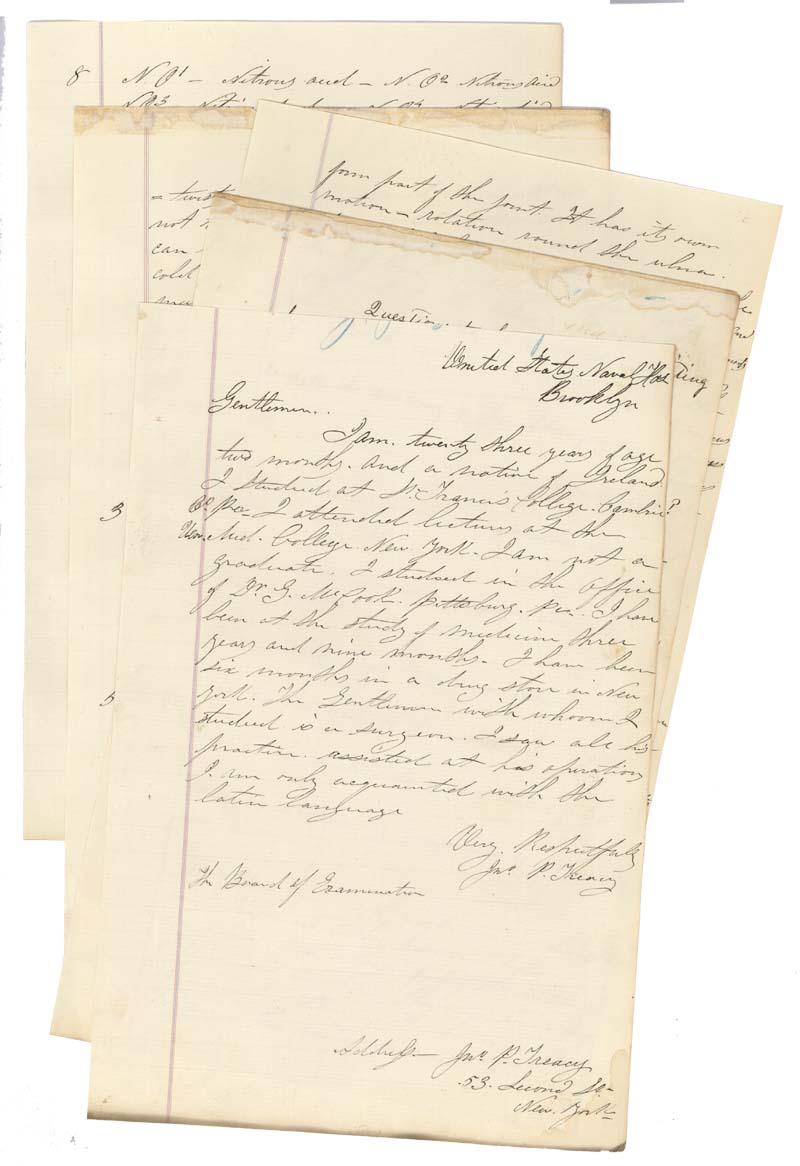 8 N.O¹ – Nitrous acid – N.O² Nitrous acid
form part of the joint. It has its own
motion – rotation round the ulna.
= twist
not
can
cold
Question.
United States Naval Hos
Brooklyn
Gentlemen..
I am. twenty three years of age
two months. and a native of Ireland.
I studied at St. Francis College. Cambria
Co. Pa= I attended lectures at the
Uni. Med. College. New York. I am not a
graduate. I studied in the office
of Dr. G. McCook. Pittsburg. Pa. I have
been at the study of medicine three
years and nine months. I have been
six months in a drug store in New
York. The Gentleman with whom I
studied is a surgeon. I saw all his
practice. assisted at his operations
I. am only acquainted with the
latin language
Very. Respectfully
Jno. P. Treacy
The Board of Examination
Address – Jno. P. Treacy
.53. Second St
New. York